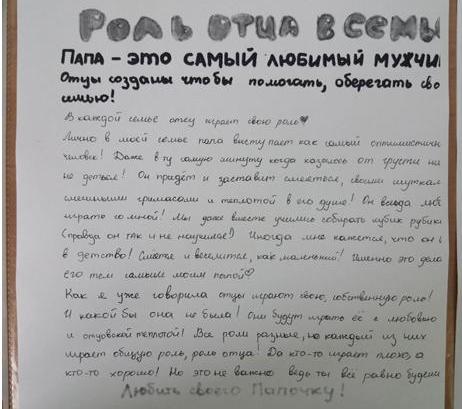 Роль отца в семь
Папа - это самый любимый мужчи
Отцы созданы чтобы помогать, оберегать сво
семью!
В каждой семье отец играет свою роль♡
Лично в моей семье папа выступает как самый оптимистичн
человек! Даже в ту самую минуту когда казалось от грусти ни
не деться! Он придёт и заставит смеяться, своими шуткам
смешными гримасами и теплотой в его душе! Он всегда
играть со мной! Мы даже вместе учились собирать кубик рубика
(правда он так и не научился!) Иногда мне кажется, что он
в детство! Смеётся и веселится, как маленький! Именно это дела
его тем самым моим папой♡
Как я уже говорила отцы играют свою, собственную роль!
И какой бы она не была! Они будут играть её с любовью
и отцовской теплотой! Все роли разные, но каждый из них
играет общую роль, роль отца! Да кто-то играет плохо, а
кто-то хорошо! Но это не важно ведь ты всё равно будешь
Любить своего Папочку!